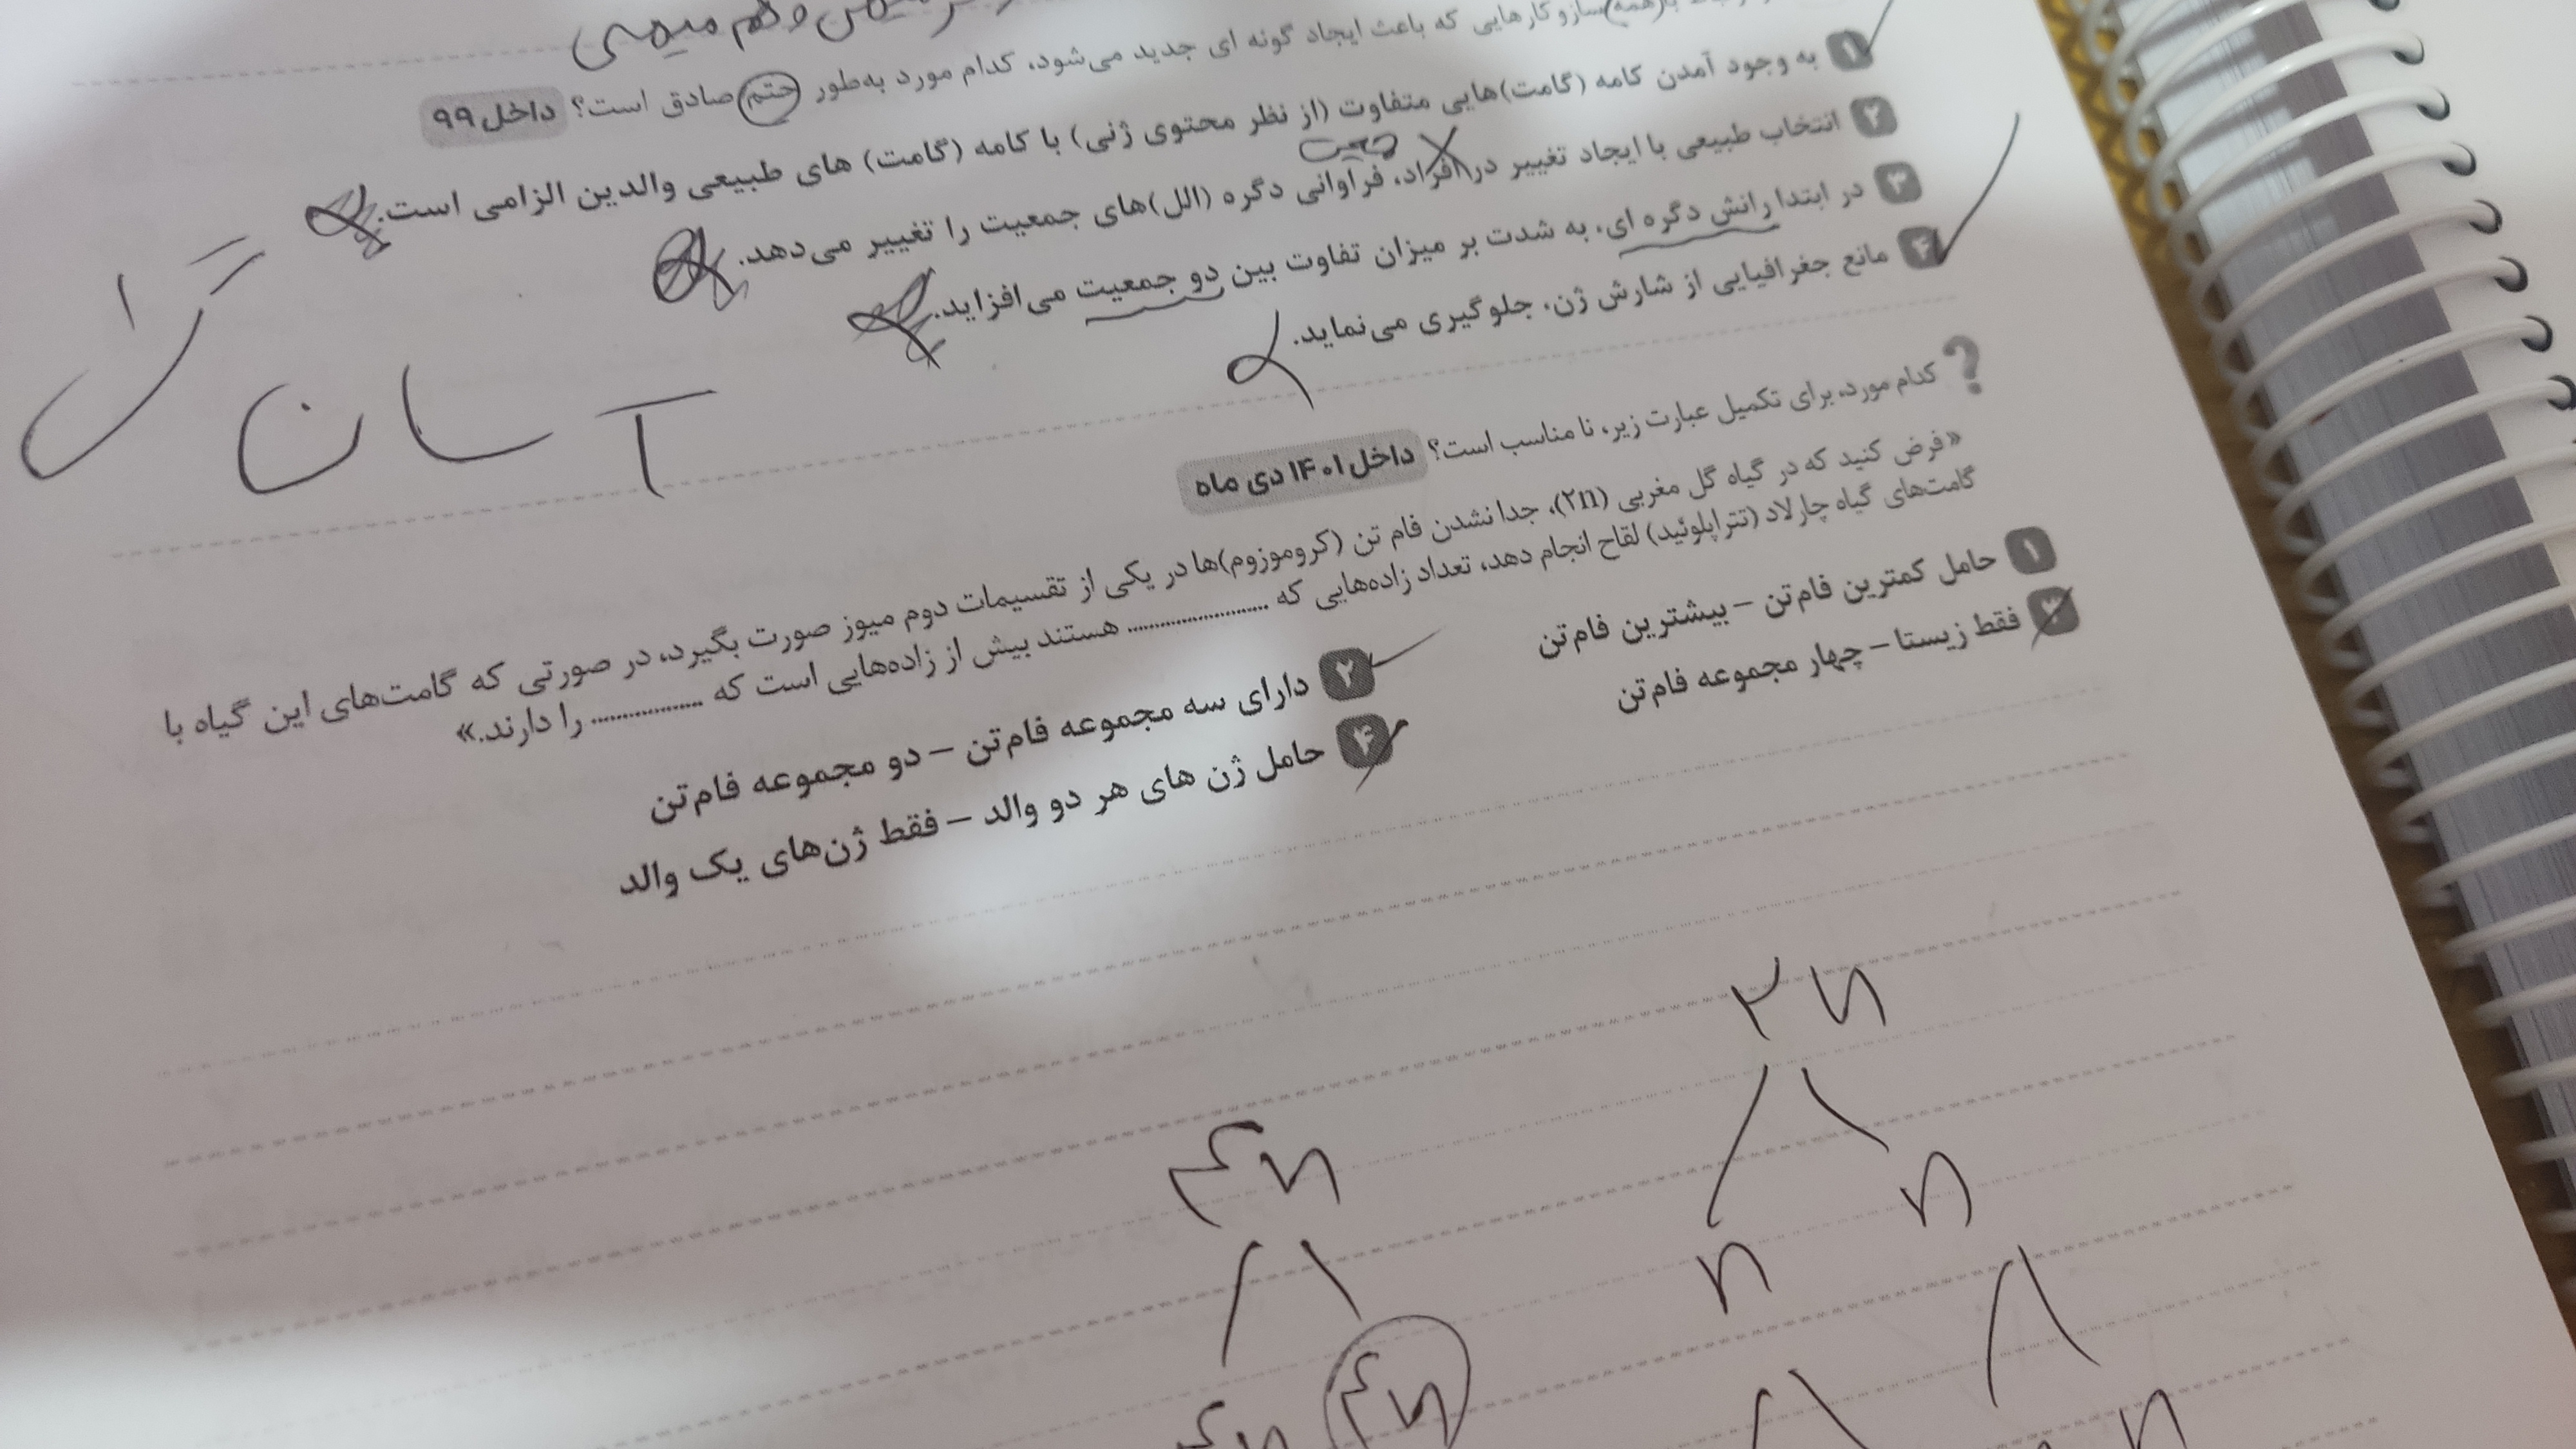 سازوکارهایی که باعث ایجاد گونه ای جدید می‌شود، کدام مورد به‌طور حتم صادق است؟ داخل ۹۹
۱ به وجود آمدن کامه (گامت)هایی متفاوت (از نظر محتوی ژنی) با کامه (گامت) های طبیعی والدین الزامی است.
جمعیت
۲ انتخاب طبیعی با ایجاد تغییر در افراد، فراوانی دگره (الل)های جمعیت را تغییر می‌دهد.
۳ در ابتدا رانش دگره ای، به شدت بر میزان تفاوت بین دو جمعیت می‌افزاید.
۴ مانع جغرافیایی از شارش ژن، جلوگیری می‌نماید.
آسان
? کدام مورد، برای تکمیل عبارت زیر، نا مناسب است؟ داخل ۱۴۰۱ دی ماه
«فرض کنید که در گیاه گل مغربی (۲n)، جدا نشدن فام تن (کروموزوم)ها در یکی از تقسیمات دوم میوز صورت بگیرد، در صورتی که گامت‌های این گیاه با
گامت‌های گیاه چارلاد (تتراپلوئید) لقاح انجام دهد، تعداد زاده‌هایی که .................... هستند بیش از زاده‌هایی است که .................... را دارند.»
۱ حامل کمترین فام‌تن – بیشترین فام‌تن
۲ دارای سه مجموعه فام‌تن – دو مجموعه فام‌تن
۳ فقط زیستا – چهار مجموعه فام‌تن
۴ حامل ژن های هر دو والد – فقط ژن‌های یک والد
۲n
۴n
n
n
۴n
n